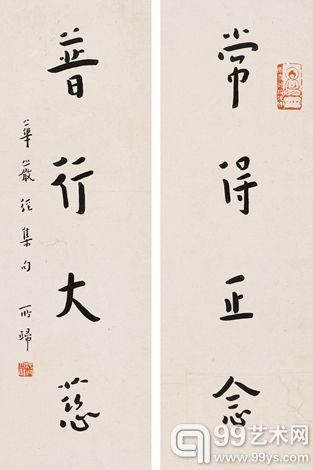 常得正念
普行大慈
華嚴經集句 所歸
99艺术网
www.99ys.com